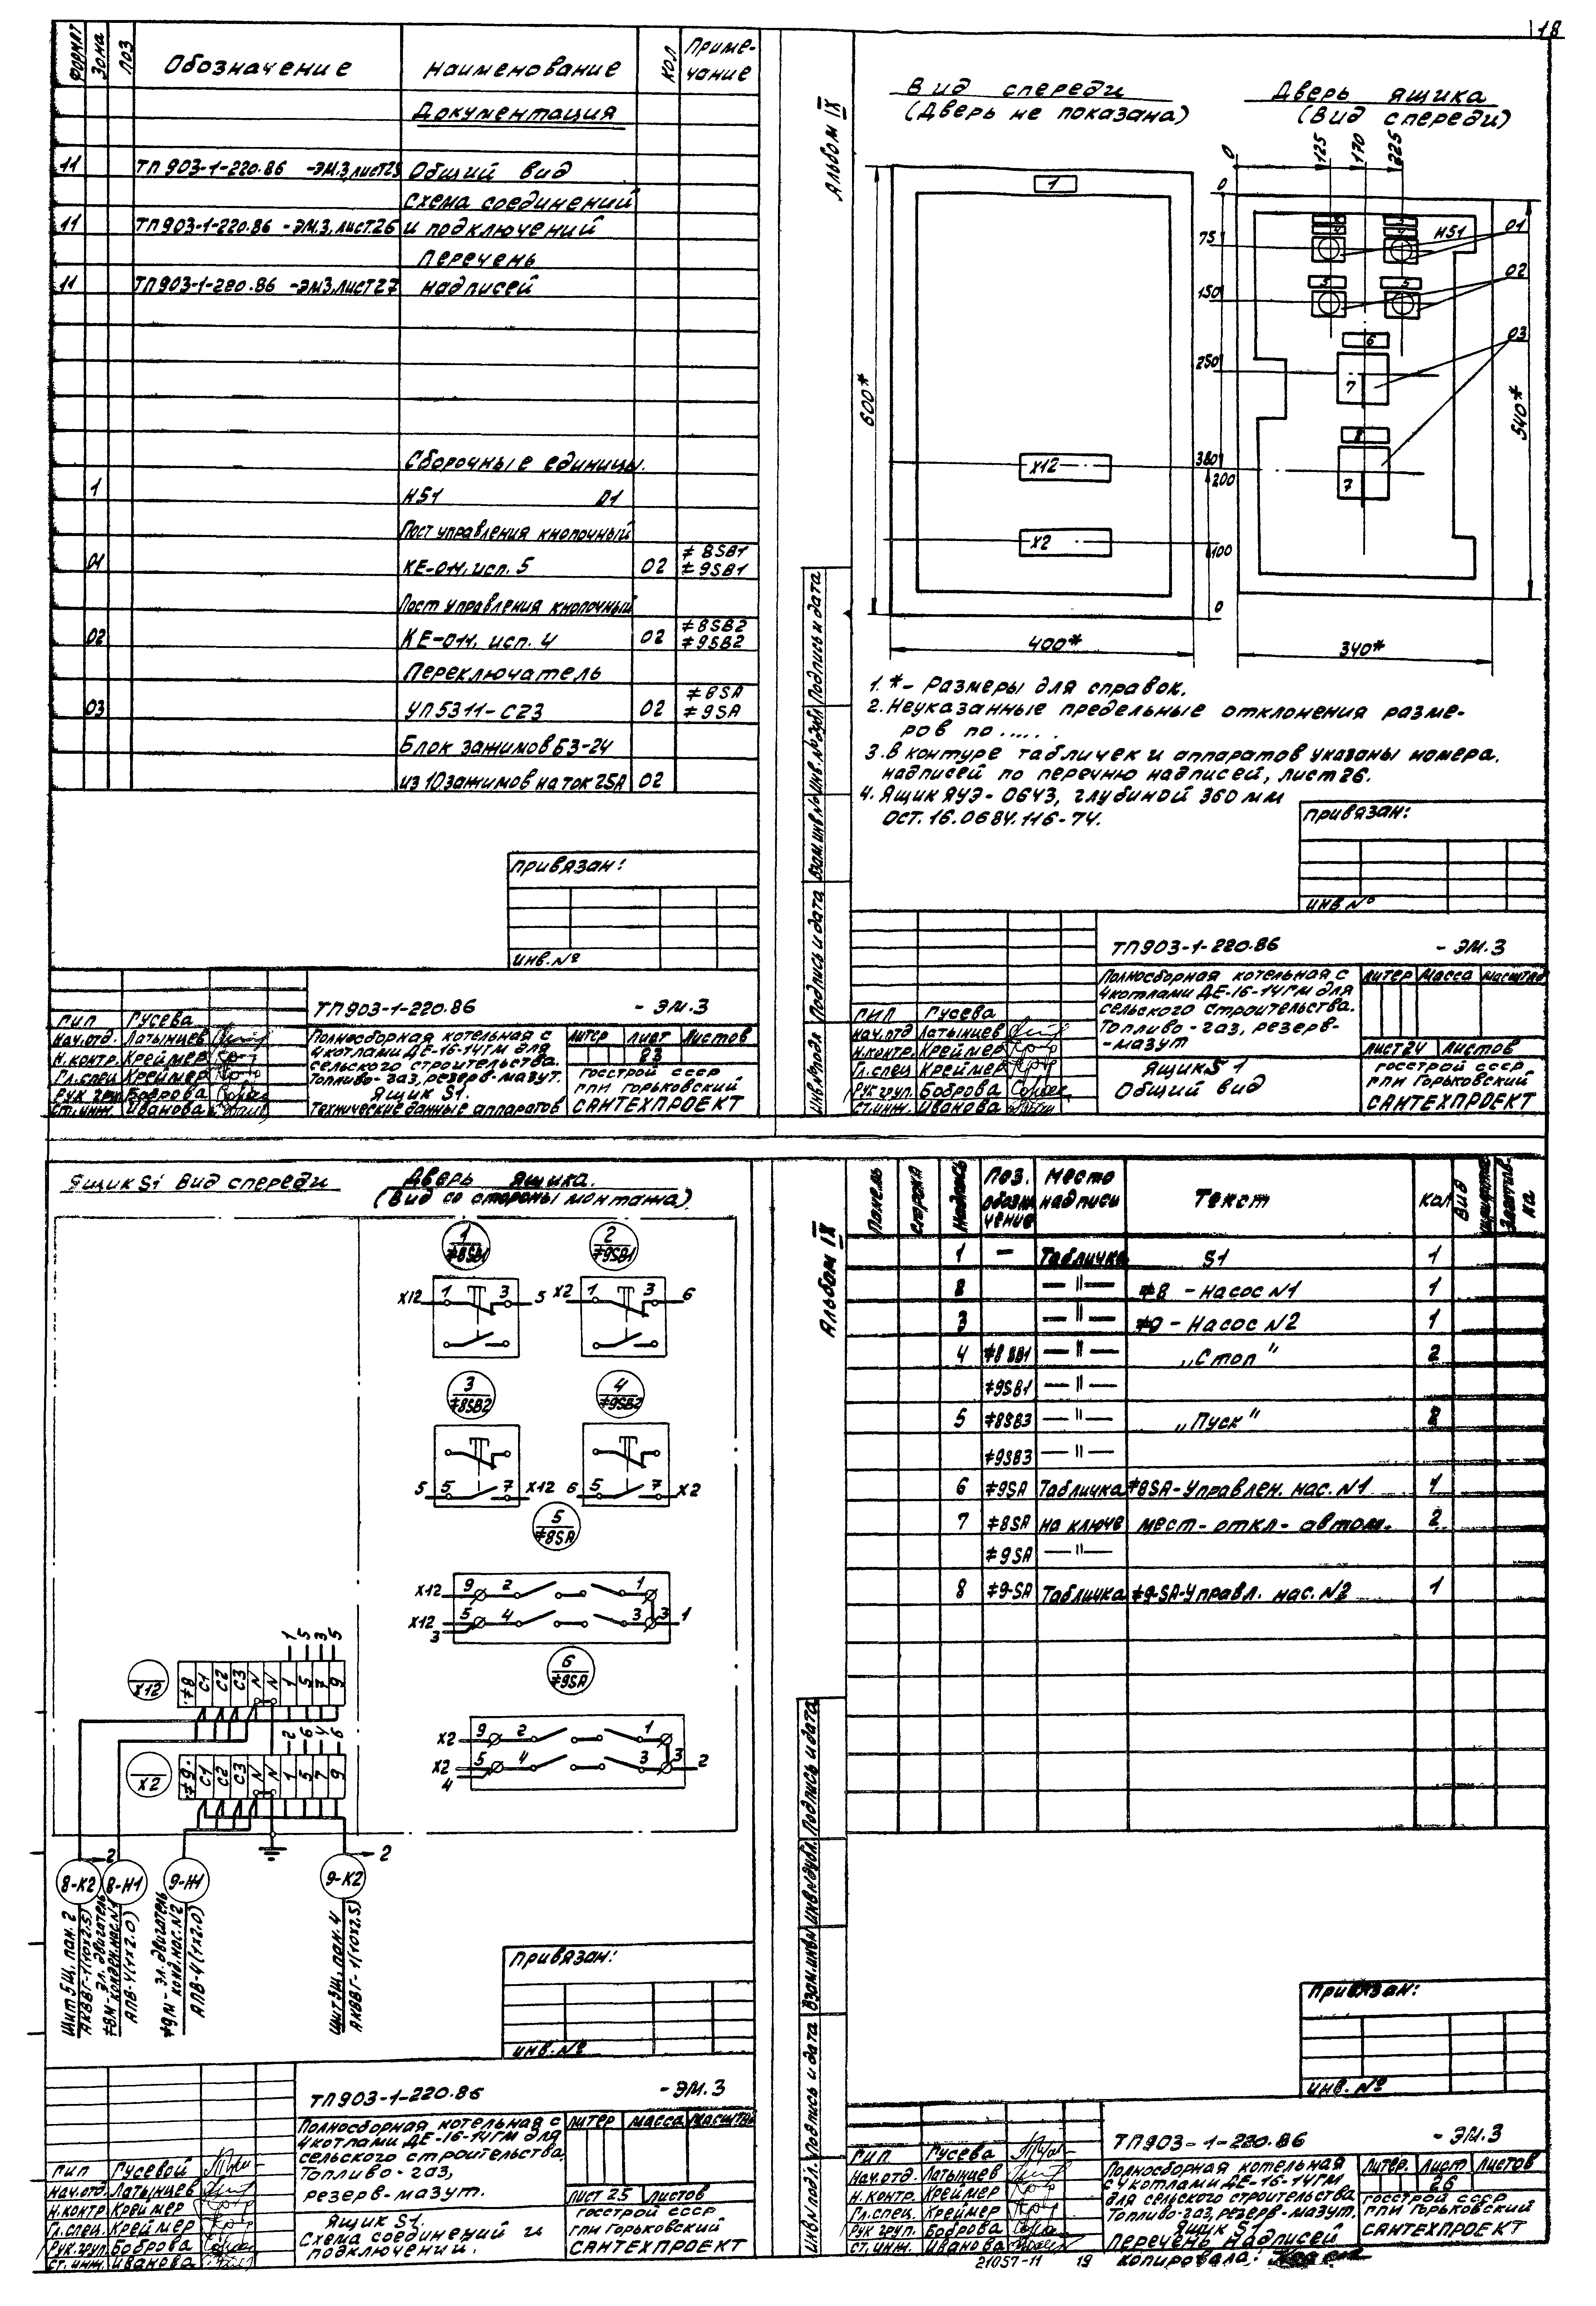 18
ФОРМАТ Зона ПОЗ Обозначение Наименование КОЛ Приме-
чание
Документация
11 ТП903-1-220.86 -ЭМ.3, лист 25 Общий вид
Схема соединений
11 ТП903-1-220.86 -ЭМ.3, лист 26 и подключений
Перечень
11 ТП903-1-220.86 -ЭМ3, лист 27 надписей
Сборочные единицы.
1 HS1 01
Пост управления кнопочный
01 КЕ-011, исп. 5 02 ≠8SB1
≠9SB1
Пост управления кнопочный
02 КЕ-011, исп. 4 02 ≠8SB2
≠9SB2
Переключатель
03 УП5311-С23 02 ≠8SA
≠9SA
Блок зажимов БЗ-24
из 10 зажимов на ток 25А 02
Привязан:
Инв.№
ТП903-1-220.86 - ЭМ.3
ГИП Гусева
Нач.отд. Латынцев
Н.контр. Креймер
Гл.спец Креймер
Рук гру. Боброва
Ст.инж. Иванова
Полносборная котельная с
4 котлами ДЕ-16-14ГМ для
сельского строительства.
Топливо-газ, резерв-мазут.
Ящик S1.
Технические данные аппаратов
Литер Лист Листов
23
Госстрой СССР
ГПИ Горьковский
САНТЕХПРОЕКТ
Альбом IX
Вид спереди
(Дверь не показана)
Дверь ящика
(Вид спереди)
0 125 170 225
1
600*
X12
X2
400*
0
75
150
250
380
200
100
0
HS1
01
02
03
5 5
6
7
8
7
540*
340*
1. *- Размеры для справок.
2. Неуказанные предельные отклонения разме-
ров по......
3. В контуре табличек и аппаратов указаны номера
надписей по перечню надписей, лист 26.
4. Ящик ЯУЭ-0643, глубиной 360 мм
ОСТ.16.0684.116-74.
Привязан:
Инв №
Инв.№подл Подпись и дата Взам.инв.№ Инв.№дубл Подпись и дата
ТП903-1-220.86 - ЭМ.3
ГИП Гусева
Нач.отд Латынцев
Н.контр. Креймер
Гл.спец Креймер
Рук груп. Боброва
Ст.инж. Иванова
Полносборная котельная с
4 котлами ДЕ-16-14ГМ для
сельского строительства.
Топливо-газ, резерв-
-мазут
Ящик S1
Общий вид
Литер Масса Масштаб
Лист 24 Листов
Госстрой СССР
ГПИ Горьковский
САНТЕХПРОЕКТ
Ящик S1 Вид спереди
Дверь ящика.
(Вид со стороны монтажа)
1
≠8SB1
2
≠9SB1
X12 1 3 5 X2 1 3 6
3
≠8SB2
4
≠9SB2
5 5 7 X12 6 5 7 X2
5
≠8SA
X12 9 2 1
X12 5 4 3 3 1
3
6
≠9SA
X2 9 2 1
X2 5 4 3 3 2
4
1 5 3 5
X12 ≠8 C1 C2 C3 N N 1 5 7 9
2 6 4 6
X2 ≠9 C1 C2 C3 N N 1 5 7 9
2 2
8-К2 8-Н1 9-Н1 9-К2
Щит 5Щ, пан. 2
АКВВГ-1(10х2.5)
≠8М-эл.двигатель
конден.нас.N1
АПВ-4(1х2.0)
≠9М-эл.двигатель
конд.нас.N2
АПВ-4(1х2.0)
АКВВГ-1(10х2.5)
Привязан:
Инв.№
ТП903-1-220.86 -ЭМ.3
ГИП Гусевой
Нач.отд. Латынцев
Н.контр Креймер
Гл.спец. Креймер
Рук.груп. Боброва
Ст. инж. Иванова
Полносборная котельная с
4 котлами ДЕ-16-14ГМ для
сельского строительства.
Топливо-газ,
резерв-мазут.
Ящик S1.
Схема соединений и
подключений.
Литер Масса Масштаб
Лист 25 Листов
Госстрой СССР
ГПИ Горьковский
САНТЕХПРОЕКТ
Альбом IX
Панель Сторона Надпись Поз. обозна чение Место надписи Текст Кол Вид шрифта
1 — Табличка S1 1
2 —"— ≠8 - Насос N1 1
3 —"— ≠9 - Насос N2 1
4 ≠8SB1 —"— „Стоп" 2
≠9SB1 —"—
5 ≠8SB3 —"— „Пуск" 2
≠9SB3 —"—
6 ≠9SA Табличка ≠8SA-Управлен. нас. N1 1
7 ≠8SA на ключе мест-откл-автом. 2
≠9SA —"—
8 ≠9-SA Табличка ≠9-SA-Управл. нас. N2 1
Привязан:
Инв. №
Инв№подл. Подпись и дата Взам.инв№ Инв№дубл. Подпись и дата
ТП903-1-220.86 -ЭМ.3
ГИП Гусева
Нач.отд. Латынцев
Н.контр. Креймер
Гл.спец. Креймер
Рук груп. Боброва
Ст. инж. Иванова
Полносборная котельная
с 4 котлами ДЕ-16-14ГМ
для сельского строительства
Топливо-газ, резерв-мазут.
Ящик S1
Перечень надписей
Литер. Лист Листов
26
Госстрой СССР
ГПИ Горьковский
САНТЕХПРОЕКТ
21057-11 19 Копировала: